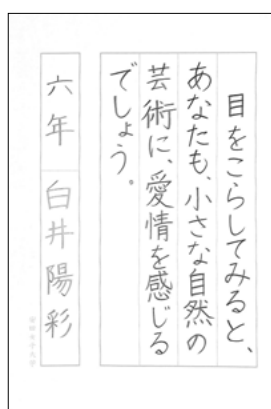 目をこらしてみると、
あなたも、小さな自然の
芸術に、愛情を感じる
でしょう。
六年 白井陽彩